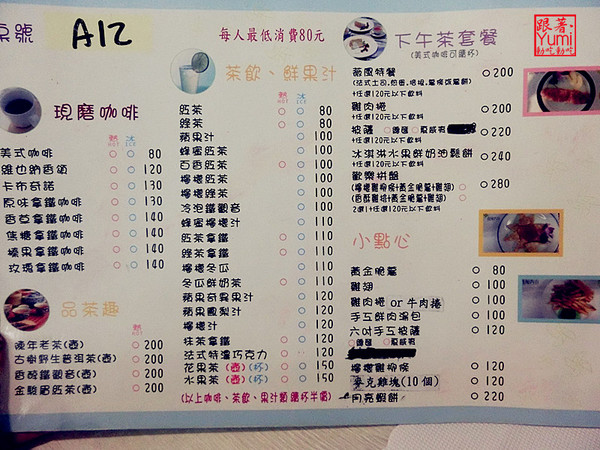 桌號
A12
每人最低消費80元
現磨咖啡
熱 冰
HOT ICE
美式咖啡 ○ ○ 80
維也納香頌 ○ ○ 120
卡布奇諾 ○ ○ 130
原味拿鐵咖啡 ○ ○ 130
香草拿鐵咖啡 ○ ○ 140
焦糖拿鐵咖啡 ○ ○ 140
榛果拿鐵咖啡 ○ ○ 140
玫瑰拿鐵咖啡 ○ ○ 140
品茶趣
熱
陳年老茶(壺) ○ 200
古樹野生普洱茶(壺) ○ 200
香醇鐵觀音(壺) ○ 200
金駿眉紅茶(壺) ○ 200
茶飲、鮮果汁
熱 冰
HOT ICE
紅茶 ○ ○ 80
綠茶 ○ ○ 80
蘋果汁 ○ 100
蜂蜜紅茶 ○ 100
百香紅茶 ○ ○ 100
檸檬紅茶 ○ 100
檸檬綠茶 ○ 100
冷泡鐵觀音 ○ 100
蜂蜜檸檬汁 ○ 110
紅茶拿鐵 ○ ○ 110
綠茶拿鐵 ○ ○ 110
檸檬冬瓜 ○ 110
冬瓜鮮奶茶 ○ ○ 110
蘋果奇異果汁 ○ 110
蘋果鳳梨汁 ○ 110
檸檬汁 ○ 110
抹茶拿鐵 ○ ○ 120
法式特濃巧克力 ○ ○ 120
花果茶(壺)(杯) ○ ○ 150
水果茶(壺)(杯) ○ ○ 150
(以上咖啡、茶飲、果汁類續杯半價)
下午茶套餐
(美式咖啡可續杯)
跟著
Yumi
動吃動吃
○ 200
+任選120元以下飲料
雞肉捲 ○ 200
+任選120元以下飲料
披薩 ○ 220
+任選120元以下飲料
冰淇淋水果鮮奶油鬆餅 ○ 240
+任選120元以下飲料
歡樂拼盤
○ 280
2選1+任選120元以下飲料
小點心
黃金脆薯 ○ 80
雞翅 ○ 100
雞肉捲 or 牛肉捲 ○ 100
手工鮮肉湯包 ○ 100
六吋手工披薩 ○ 120
檸檬雞柳條 ○ 120
麥克雞塊(10個) ○ 120
月亮蝦餅 ○ 220